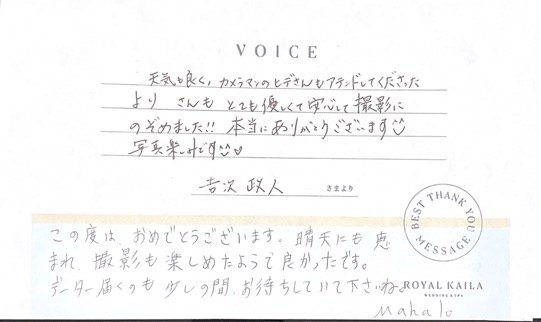 VOICE
天気も良く、カメラマンのヒデさんもアテンドしてくださった
よりさんもとても優しくて安心して撮影に
のぞめました!! 本当にありがとうございます
写真楽しみです♡
吉次 政人 さまより
BEST THANK YOU MESSAGE
この度は、おめでとうございます。晴天にも恵
まれ、撮影も楽しめたようで良かったです。
データー届くのも少しの間、お待ちしていて下さいね。
ROYAL KAILA
WEDDING & SPA
Mahalo